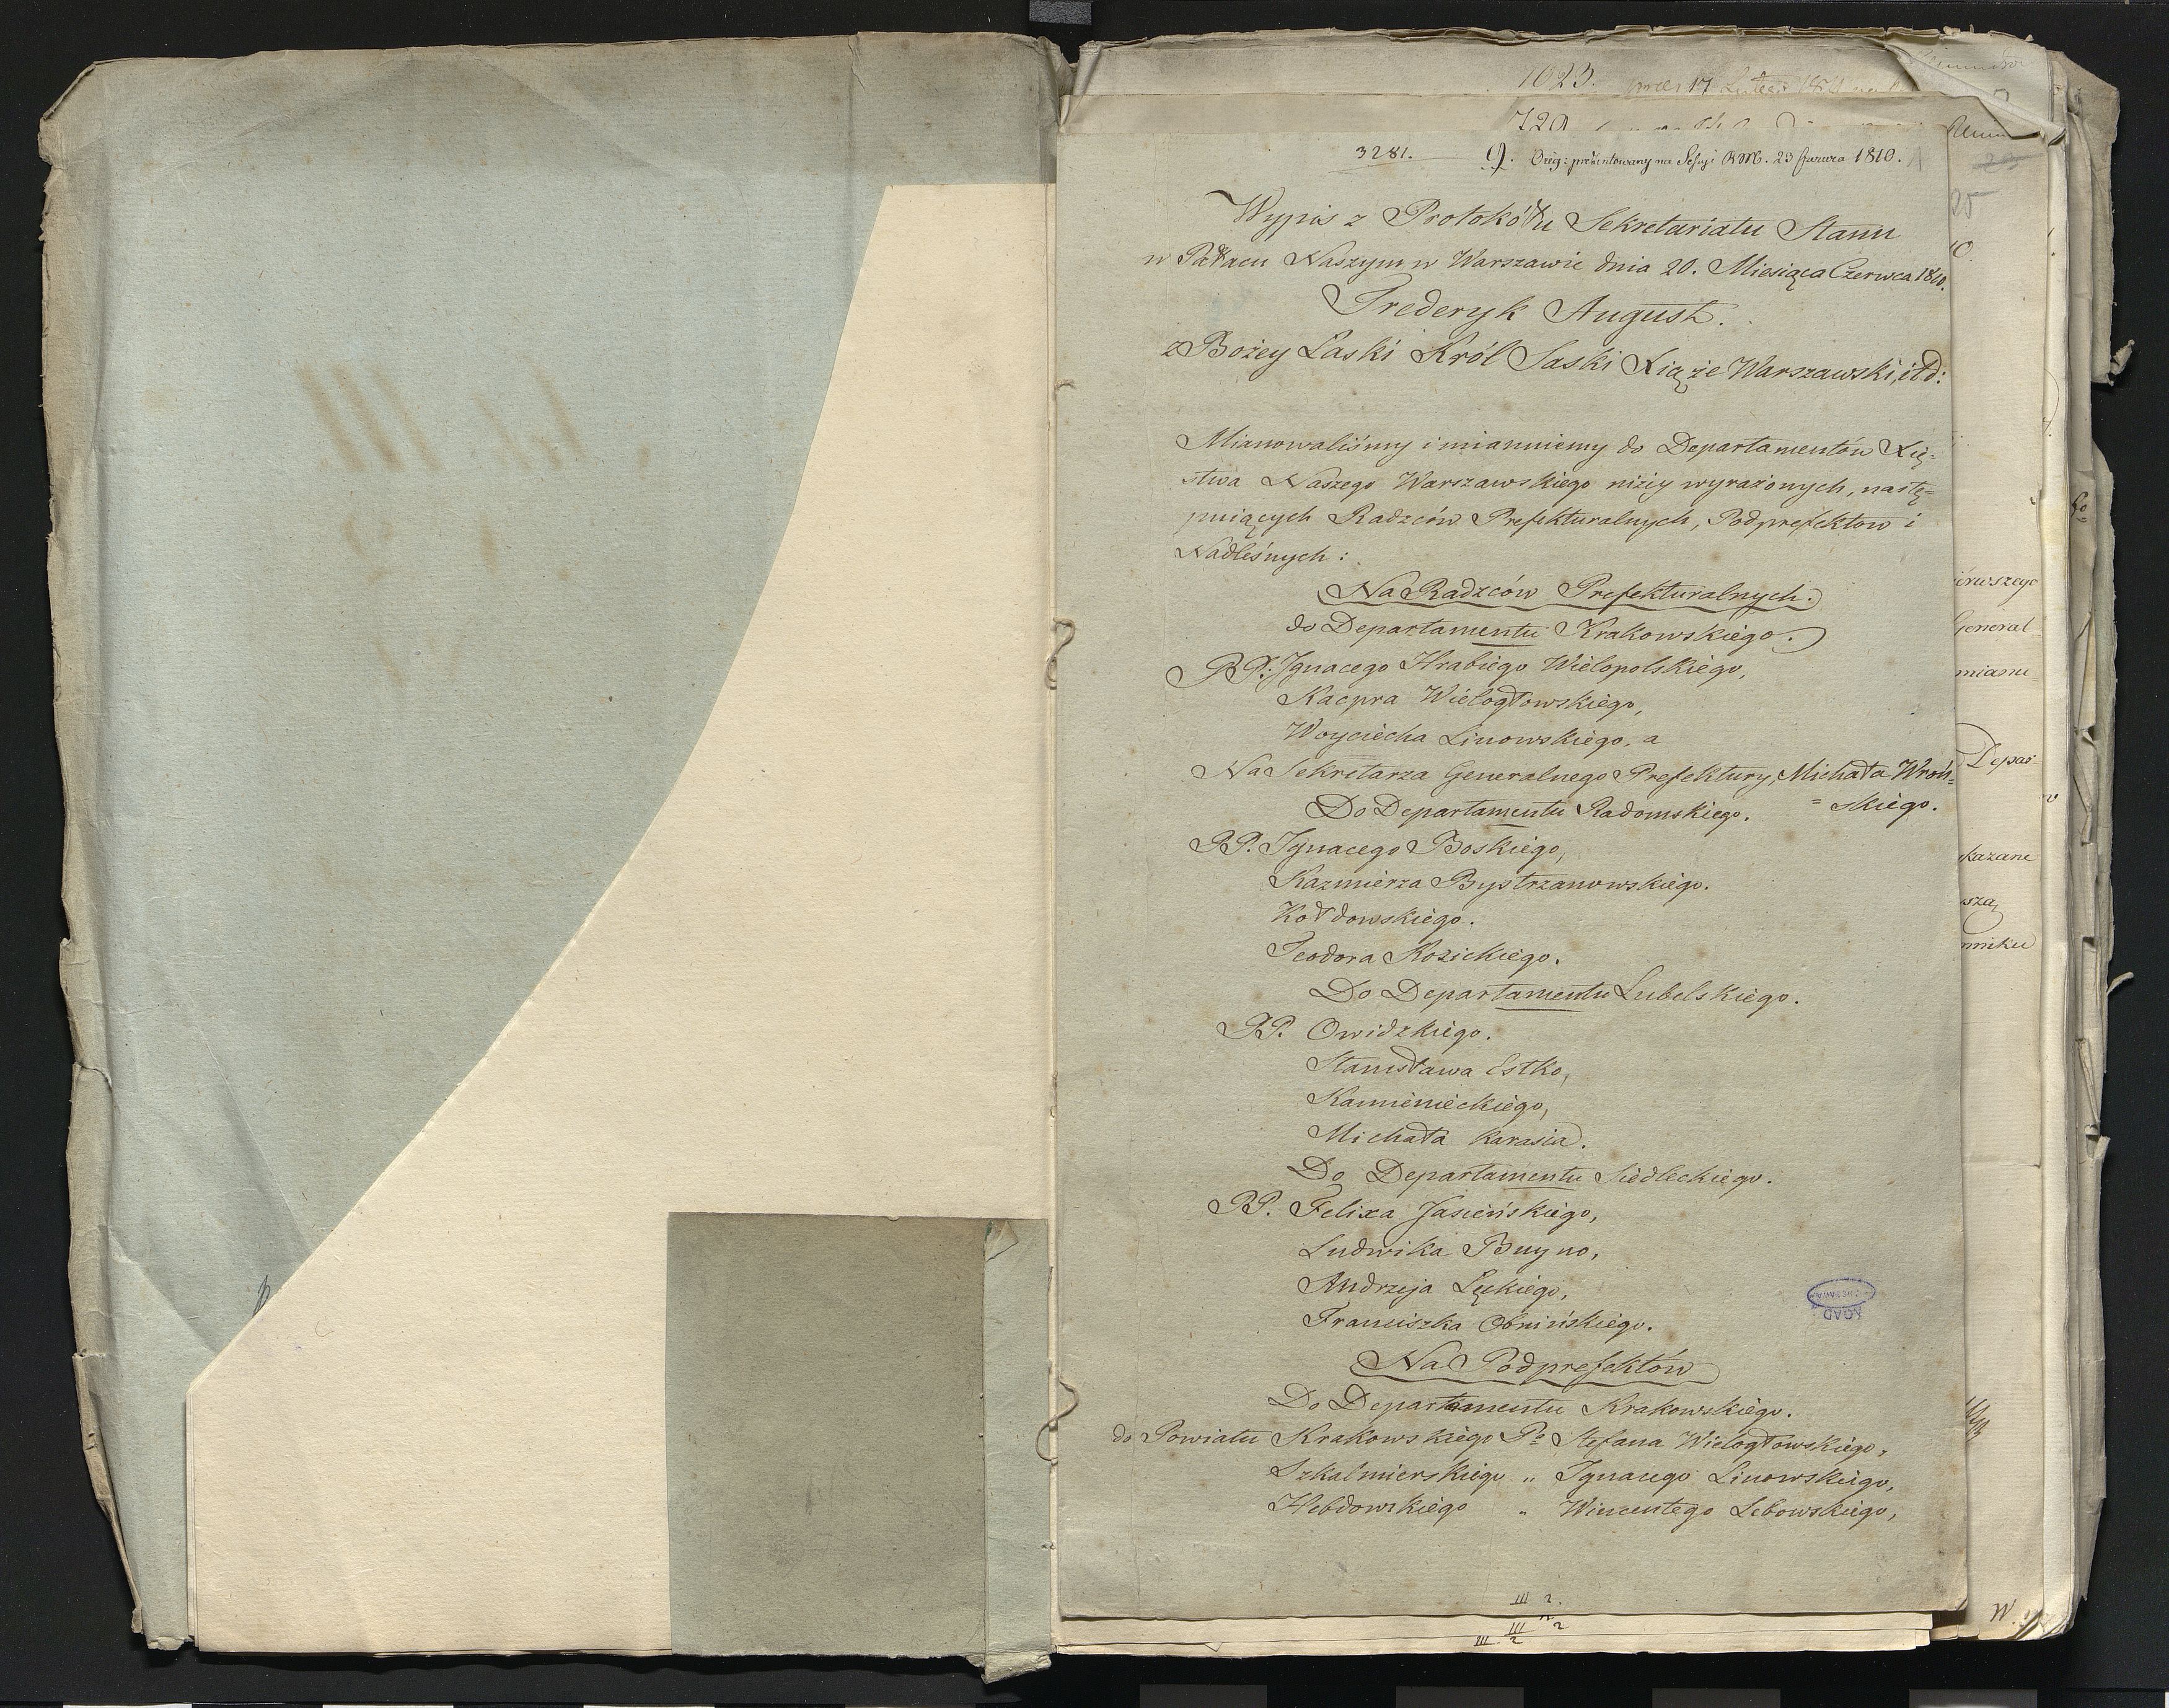 1023.
729
3281. 9. Oryg: prezentowany na Sessyi RM. 23 Czerwca 1810.
Wypis z Protokółu Sekretariatu Stanu
w Pałacu Naszym w Warszawie dnia 20. Miesiąca Czerwca 1810.
Frederyk August.
z Bożey Łaski Król Saski Xiąże Warszawski, itd:
Mianowaliśmy i mianuiemy do Departamentów Xię=
stwa Naszego Warszawskiego niżey wyrażonych, nastę=
puiących Radzców Prefekturalnych, Podprefektow i
Nadleśnych:
Na Radzców Prefekturalnych.
do Departamentu Krakowskiego.
PP. Jgnacego Hrabiego Wielopolskiego,
Kacpra Wielogłowskiego,
Woyciecha Linowskiego, a
Na Sekretarza Generalnego Prefektury, Michała Wroń=
= skiego.
Do Departamentu Radomskiego.
PP. Jgnacego Boskiego,
Kazmierza Bystrzanowskiego.
Kołdowskiego.
Teodora Kozickiego.
Do Departamentu Lubelskiego.
PP. Owidzkiego.
Stanisława Estko,
Kamienieckiego,
Michała Karasia.
Do Departamentu Siedleckiego.
PP. Felixa Jasieńskiego,
Ludwika Buyno,
Andrzeja Łęckiego,
Franciszka Obnińskiego.
AGAD
Na Podprefektów
Do Departamentu Krakowskiego.
do Powiatu Krakowskiego Pa Stefana Wielogłowskiego,
Szkalmierskiego „ Jgnacego Linowskiego,
Hebdowskiego „ Wincentego Łebowskiego,
III 2.
III 2
III 2
25
ierwszego
General
mianu=
Depar=
kazane
szą
nniku
W.